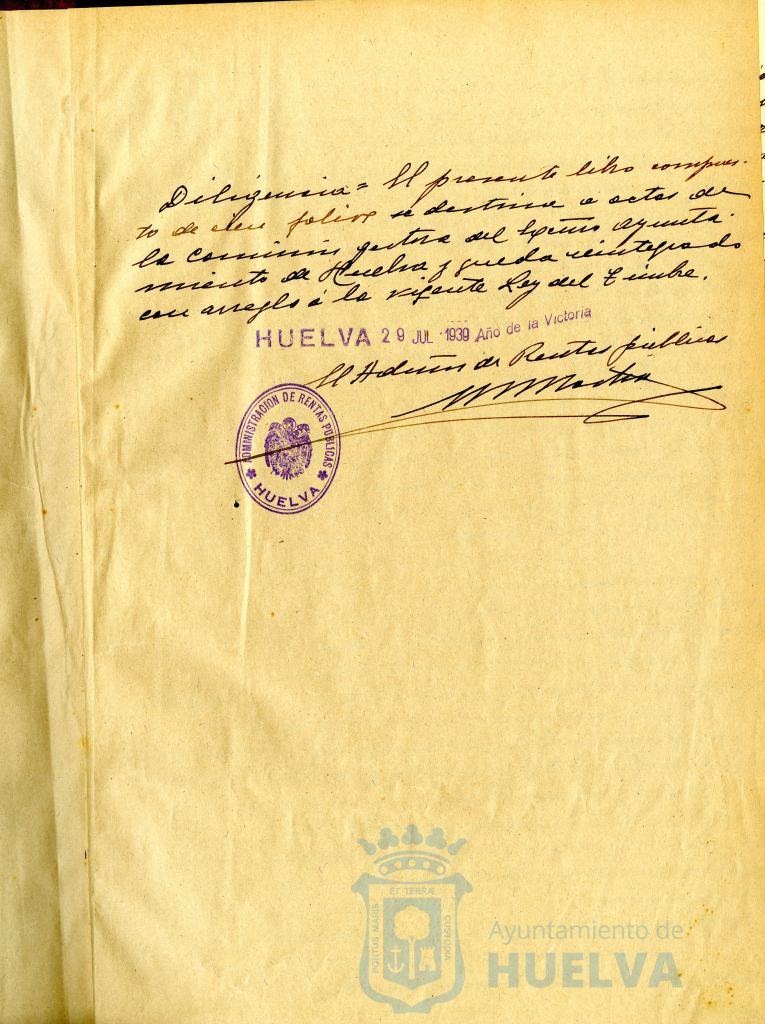 Diligencia = El presente libro compues-
to de cien folios se destina a actas de
la comisión gestora del Excmo Ayunta-
miento de Huelva y queda reintegrado
con arreglo á la vigente Ley del Timbre.
HUELVA 29 JUL 1939 Año de la Victoria
El Admor de Rentas públicas
ADMINISTRACION DE RENTAS PUBLICAS
* HUELVA *
ET TERRÆ
PORTUS MARIS
CUSTODIA
Ayuntamiento de
HUELVA